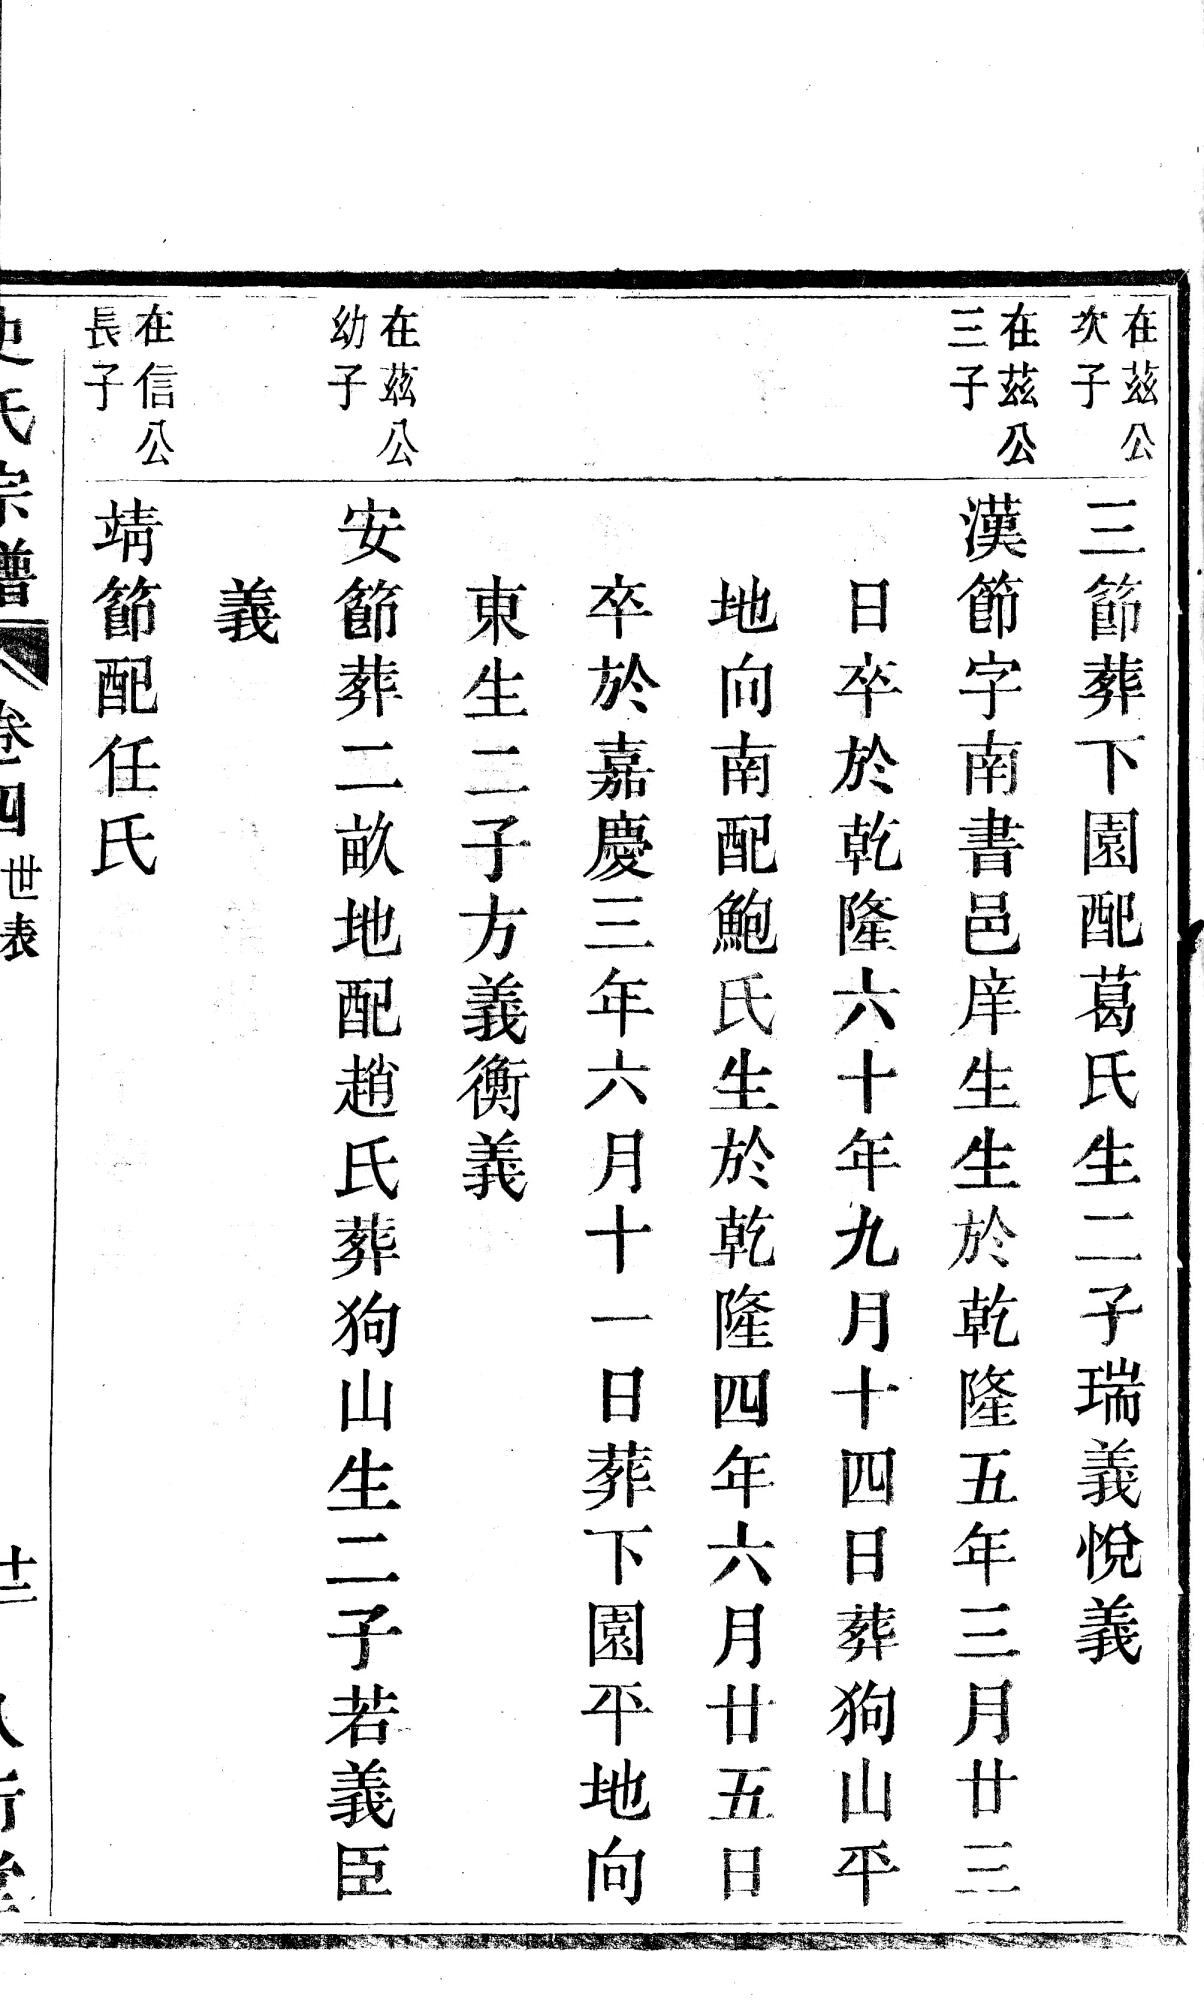 在茲公
次子
三節葬下園配葛氏生二子瑞義悅義
在茲公
三子
漢節字南書邑庠生生於乾隆五年三月廿三
日卒於乾隆六十年九月十四日葬狗山平
地向南配鮑氏生於乾隆四年六月廿五日
卒於嘉慶三年六月十一日葬下園平地向
東生二子方義衡義
在茲公
幼子
安節葬二畝地配趙氏葬狗山生二子若義臣
義
在信公
長子
靖節配任氏
史氏宗譜 卷四 世表 十二 八行堂